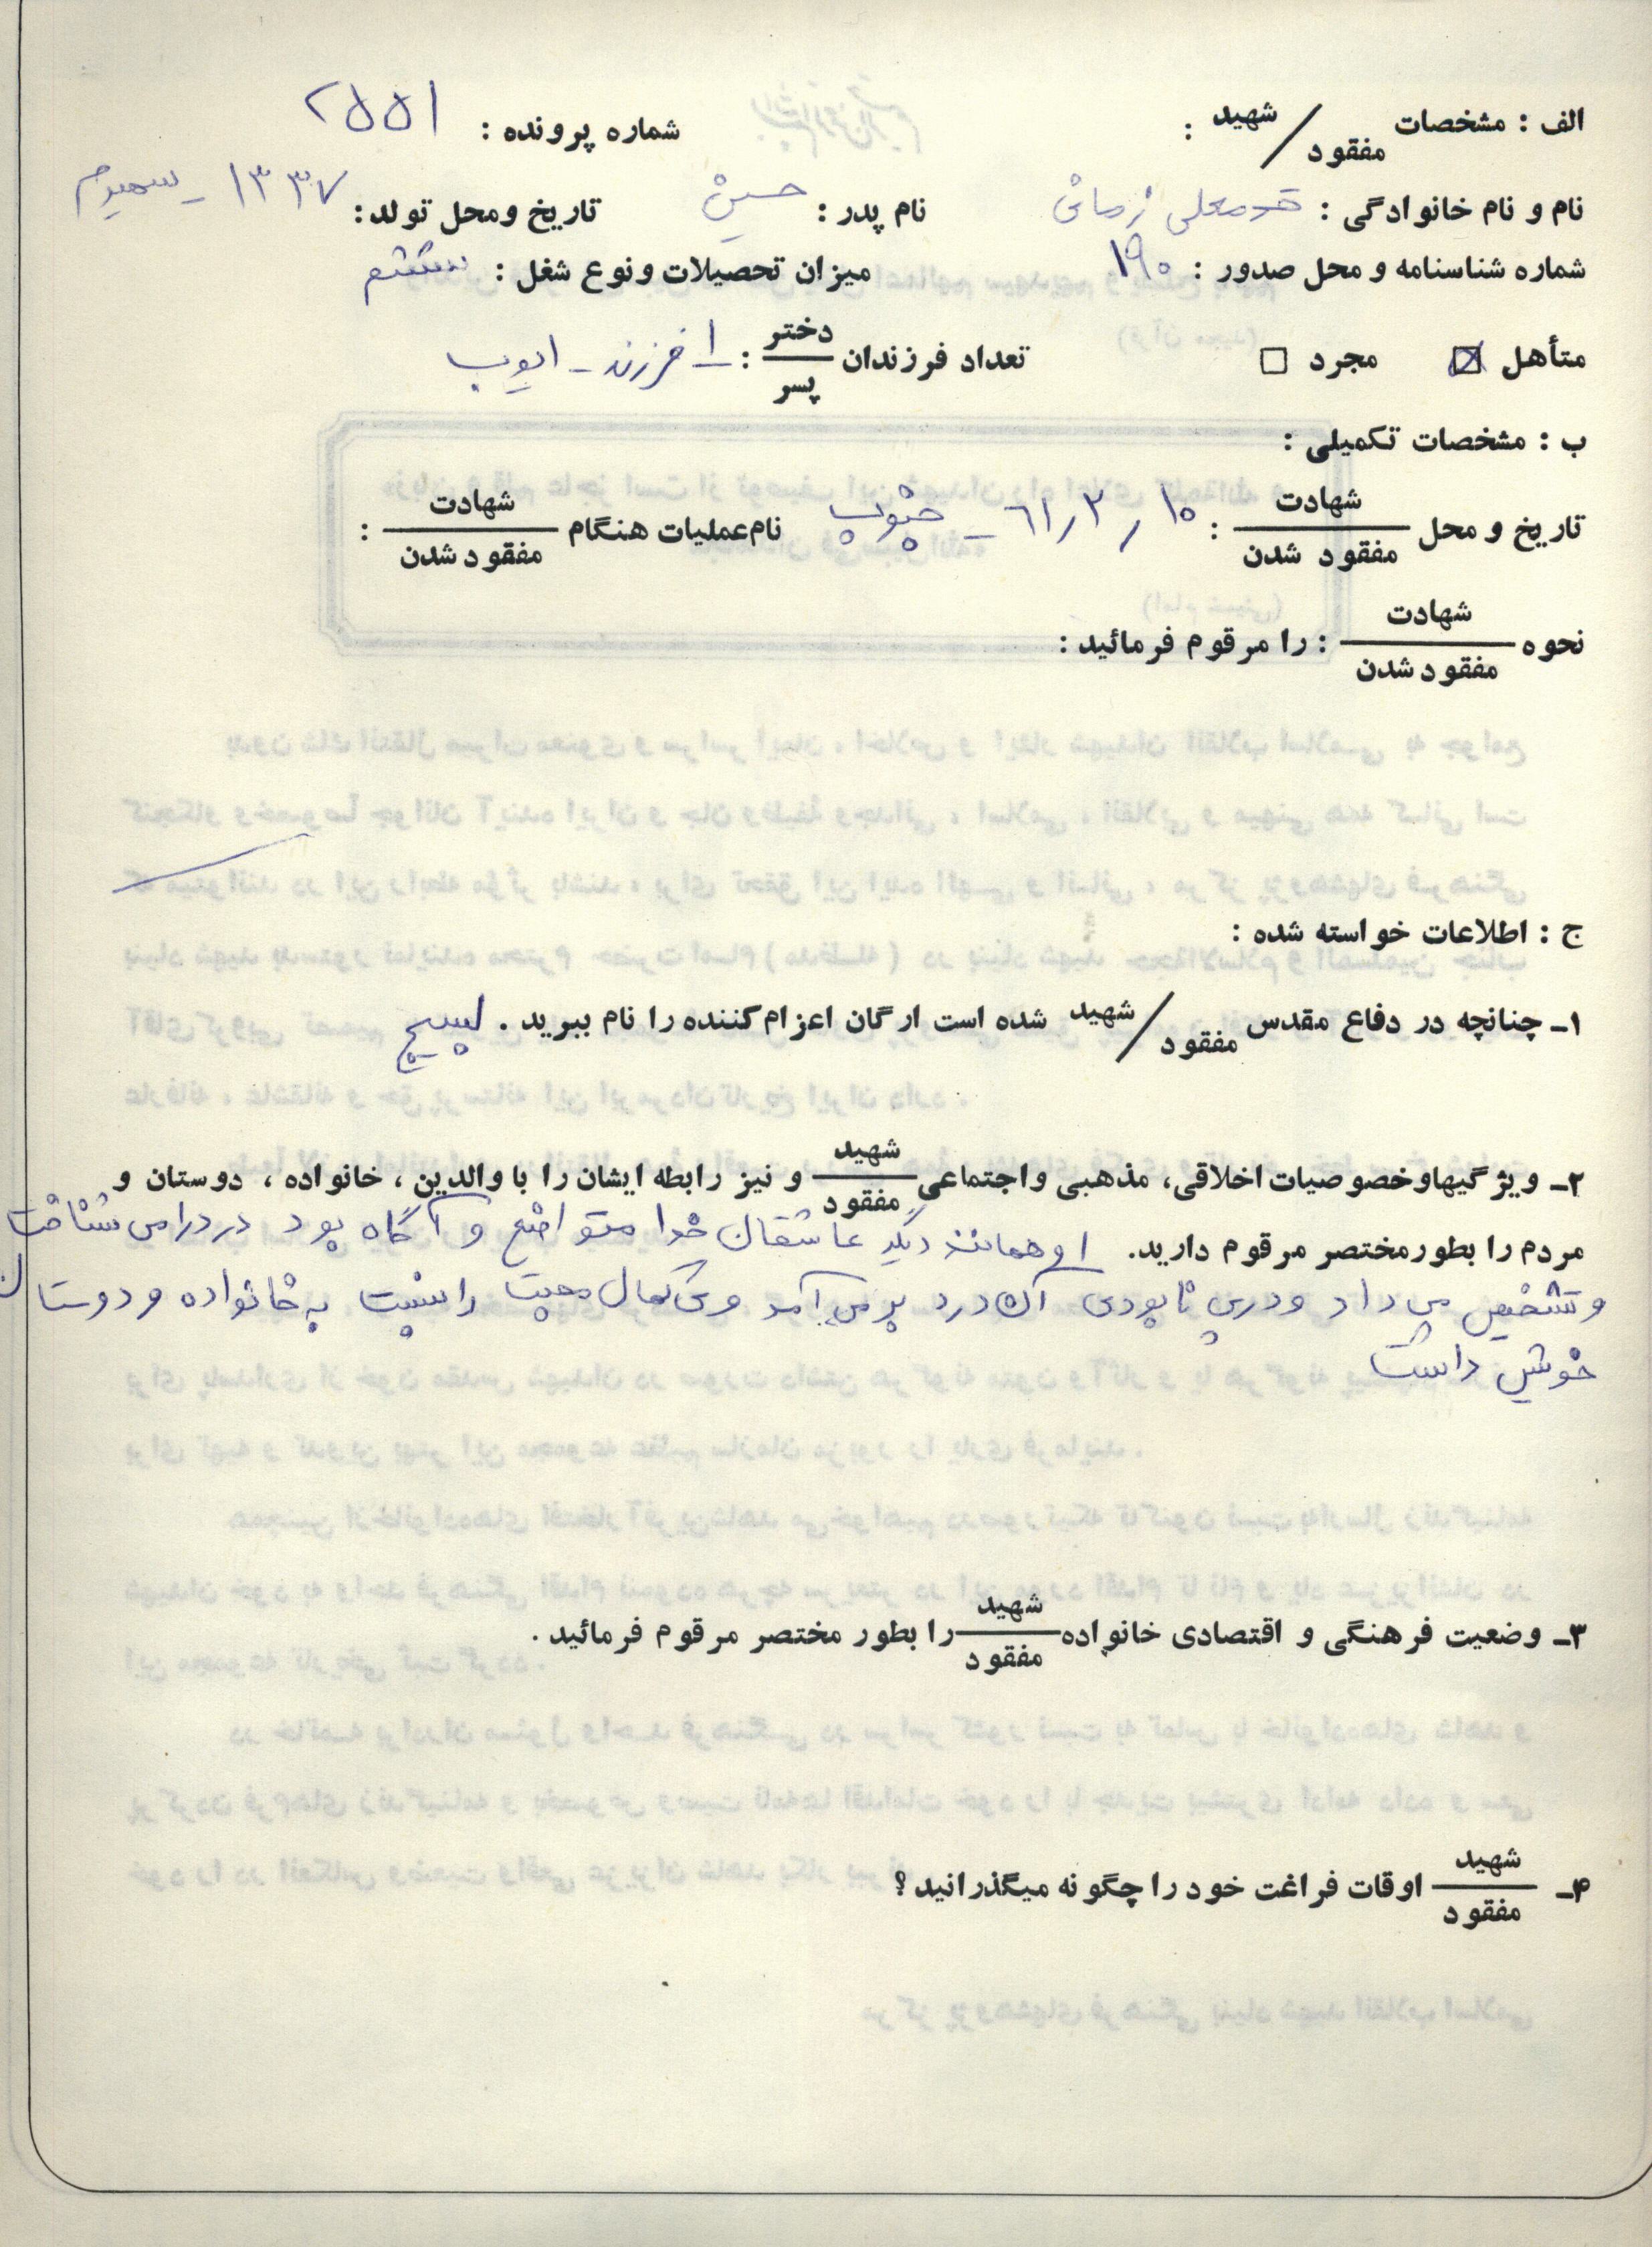 الف : مشخصات شهید / مفقود : شماره پرونده : ۲۵۵۱
نام و نام خانوادگی : قدمعلی زمانی نام پدر : حسین تاریخ ومحل تولد : ۱۳۳۷ -
شماره شناسنامه و محل صدور : ۱۹۰ میزان تحصیلات ونوع شغل : ششم
متأهل ☒ مجرد ☐ تعداد فرزندان دختر / پسر : ۱ فرزند - ایوب
ب : مشخصات تکمیلی :
تاریخ و محل شهادت / مفقود شدن : ۱۰ / ۳ / ۶۱ - جنوب نام عملیات هنگام شهادت / مفقود شدن :
نحوه شهادت / مفقود شدن : را مرقوم فرمائید :
ج : اطلاعات خواسته شده :
۱ـ چنانچه در دفاع مقدس شهید / مفقود شده است ارگان اعزام کننده را نام ببرید . بسیج
۲ـ ویژگیهاوخصوصیات اخلاقی، مذهبی واجتماعی شهید / مفقود و نیز رابطه ایشان را با والدین ، خانواده ، دوستان و
مردم را بطورمختصر مرقوم دارید. او همانند دیگر عاشقان خدا متواضع و آگاه بود درد را می شناخت
و تشخیص می داد و درپی نابودی آن درد بر می آمد وی کمال محبت را نسبت به خانواده و دوستان
خویش داشت
۳ـ وضعیت فرهنگی و اقتصادی خانواده شهید / مفقود را بطور مختصر مرقوم فرمائید .
۴ـ شهید / مفقود اوقات فراغت خود را چگونه میگذرانید ؟